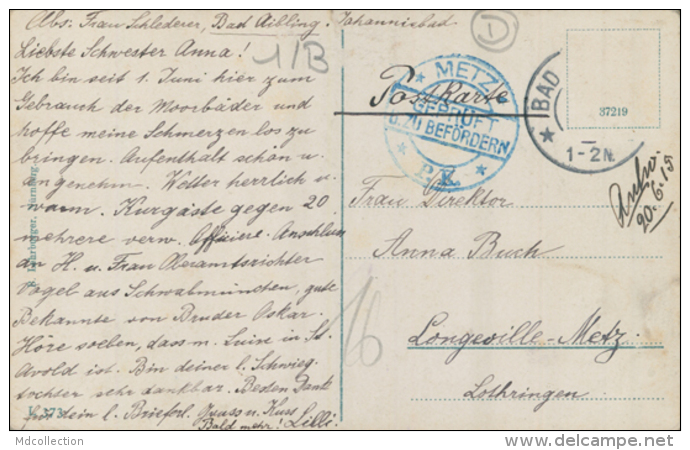 Abs. Frau Schlederer, Bad Aibling. Johannisbad
Liebste Schwester Anna!
Ich bin seit 1. Juni hier zum
Gebrauch der Moorbäder und
hoffe meine Schmerzen los zu
bringen. Aufenthalt schön u.
angenehm. Wetter herrlich u.
warm. Kurgäste gegen 20
mehrere verw. Offiziere. Anschluss
an H. u. Frau Oberamtsrichter
Vogel aus Schwabmünchen, gute
Bekannte von Bruder Oskar.
Höre soeben, dass m. Luise in St.
Avold ist. Bin deiner l. Schwieg.
tochter sehr dankbar. Besten Dank
für dein l. Brieferl. Gruss u. Kuss
Bald mehr! Lilli.
1/B
D
Postkarte
METZ
GEPRÜFT
U. ZU BEFÖRDERN
P.K.
BAD
1-2N.
37219
20.6.15
Frau Direktor
Anna Buch
Longeville-Metz.
Lothringen
16
Nürnberg.
373
Mdcollection
delcampe.net